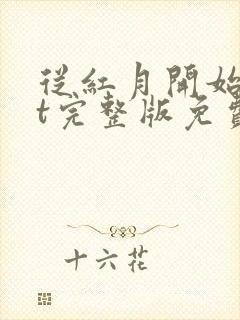 從紅月開始
t完整版免費
十六花